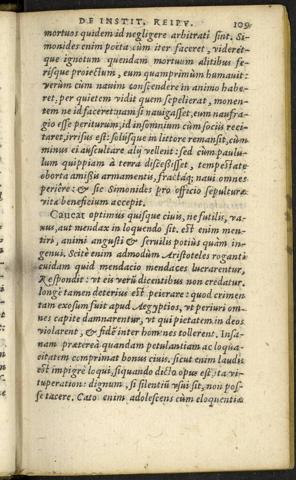 DE INSTIT. REIPV. 109
mortuos quidem id negligere arbitrati sint. Si-
monides enim poëta cùm iter faceret, videret-
que ignotum quendam mortuum alitibus fe-
risque proiectum, eum quamprimùm humauit:
verùm cùm nauim conscendere in animo habe-
ret, per quietem vidit quem sepelierat, monen-
tem ne id faceret: nam si nauigasset, eum naufra-
gio esse periturum: id insomnium cùm sociis reci-
taret, irrisus est: solúsque in littore remansit, cùm
minus ei auscultare alij vellent: sed cùm paulu-
lum quippiam à terra discessisset, tempestate
oborta amissis armamentis, fractáq; naui omnes
periêre: & sic Simonides pro officio sepulturæ
vitæ beneficium accepit.
Caueat optimus quisque ciuis, ne futilis, va-
nus, aut mendax in loquendo sit. est enim men-
tiri, animi angusti & seruilis potiùs quàm in-
genui. Scitè enim admodùm Aristoteles roganti
cuidam quid mendacio mendaces lucrarentur,
Respondit: vt eis verũ dicentibus non credatur.
longè tamen deterius est peierare: quod crimen
tam exosum fuit apud Aegyptios, vt periuri om-
nes capite damnarentur, vt qui pietatem in deos
violarent, & fidẽ inter homines tollerent. Insa-
nam præterea quandam petulantiam ac loqua-
citatem comprimat bonus ciuis. sicut enim laudis
est impigrè loqui, siquando dicto opus est, ita vi-
tuperatione dignum, si silentiũ vsui sit, non pos-
se tacere. Cato enim adolescens cùm eloquentiæ